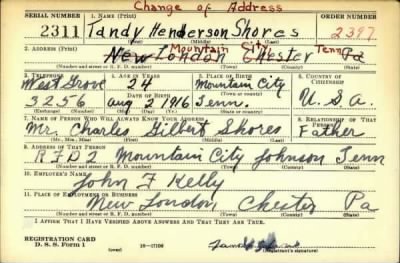 Change of Address
SERIAL NUMBER 1. NAME (Print) ORDER NUMBER
2311 Tandy Henderson Shores 2397
(First) (Middle) (Last)
2. ADDRESS (Print) Mountain City Tenn
New London Chester Pa
(Number and street or R. F. D. number) (Town) (County) (State)
3. TELEPHONE 4. AGE IN YEARS 5. PLACE OF BIRTH 6. COUNTRY OF CITIZENSHIP
West Grove 24 Mountain City
DATE OF BIRTH (Town or county)
3256 Aug 2 1916 Tenn. U.S.A.
(Exchange) (Number) (Mo.) (Day) (Yr.) (State or country)
7. NAME OF PERSON WHO WILL ALWAYS KNOW YOUR ADDRESS 8. RELATIONSHIP OF THAT PERSON
Mr. Charles Gilbert Shores Father
(Mr., Mrs., Miss) (First) (Middle) (Last)
9. ADDRESS OF THAT PERSON
RFD2 Mountain City Johnson Tenn
(Number and street or R. F. D. number) (Town) (County) (State)
10. EMPLOYER'S NAME
John F Kelly
11. PLACE OF EMPLOYMENT OR BUSINESS
New London Chester Pa
(Number and street or R. F. D. number) (Town) (County) (State)
I AFFIRM THAT I HAVE VERIFIED ABOVE ANSWERS AND THAT THEY ARE TRUE.
REGISTRATION CARD
D. S. S. Form 1 (Registrant's signature)